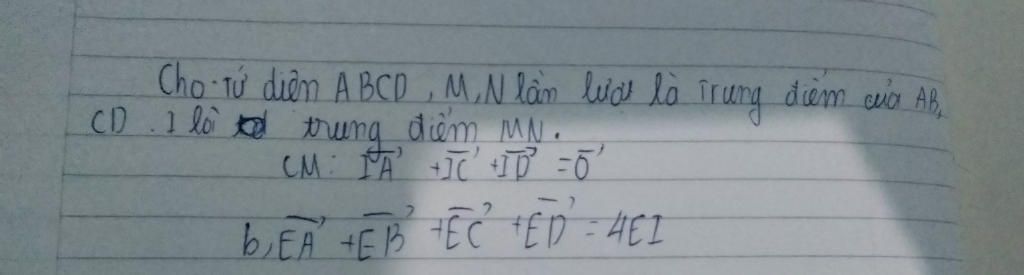 Cho tứ diện ABCD, M, N lần lượt là trung điểm của AB,
CD. I là trung điểm MN.
CM: IA + IC + ID = 0
b, EA + EB + EC + ED = 4EI